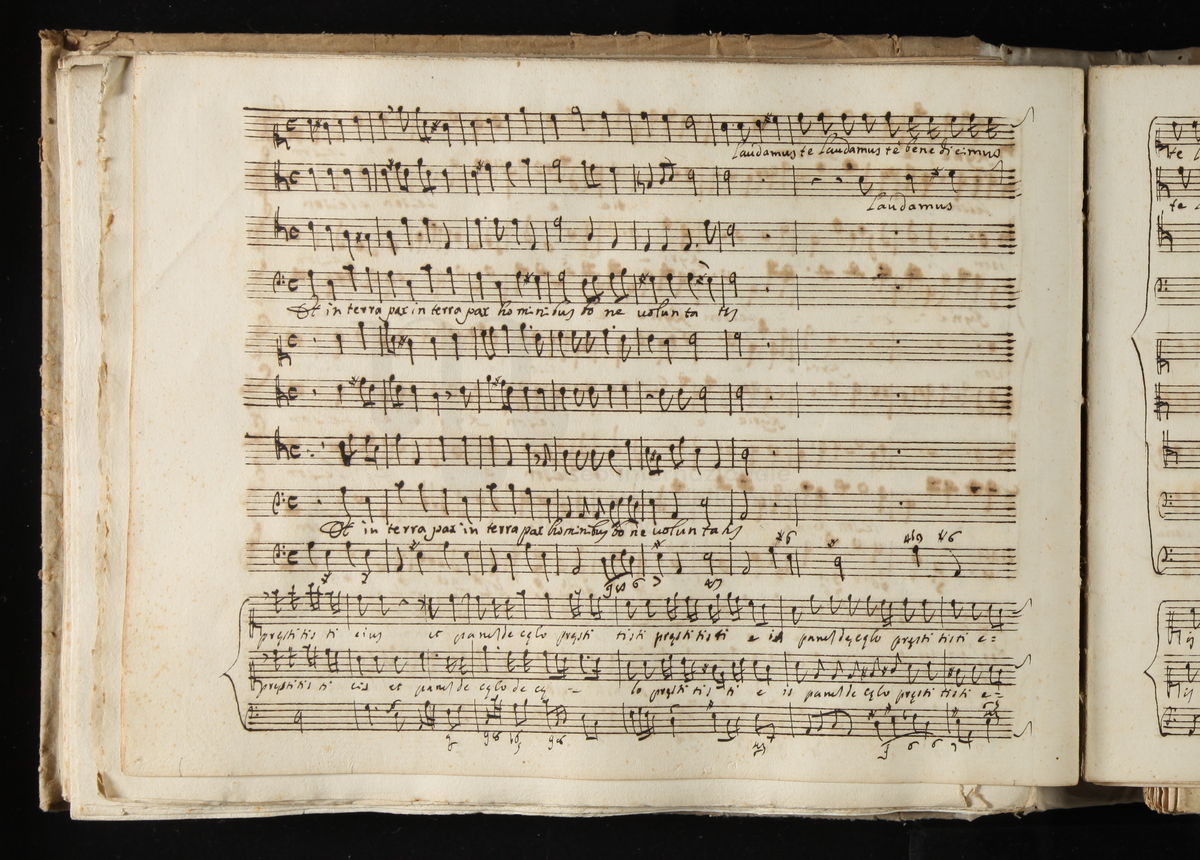 Laudamus te Laudamus te benedicimus
Laudamus
Et in terra pax in terra pax hominibus bo ne volunta tis
Et in terra pax in terra pax hominibus bo ne voluntatis
pręstitis ti eius et panem de cęlo pręsti tisti pręstitisti e is panem de cęlo pręsti tisti e=
pręstitis ti eis et panem de cęlo de cę - - lo pręsti tis ti e is panem de cęlo pręsti tisti e=
te
te